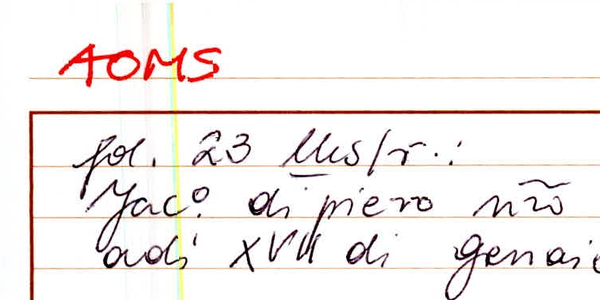 AOMS
fol. 23 /r.:
Jac.º di piero não
adi XVII di genaio